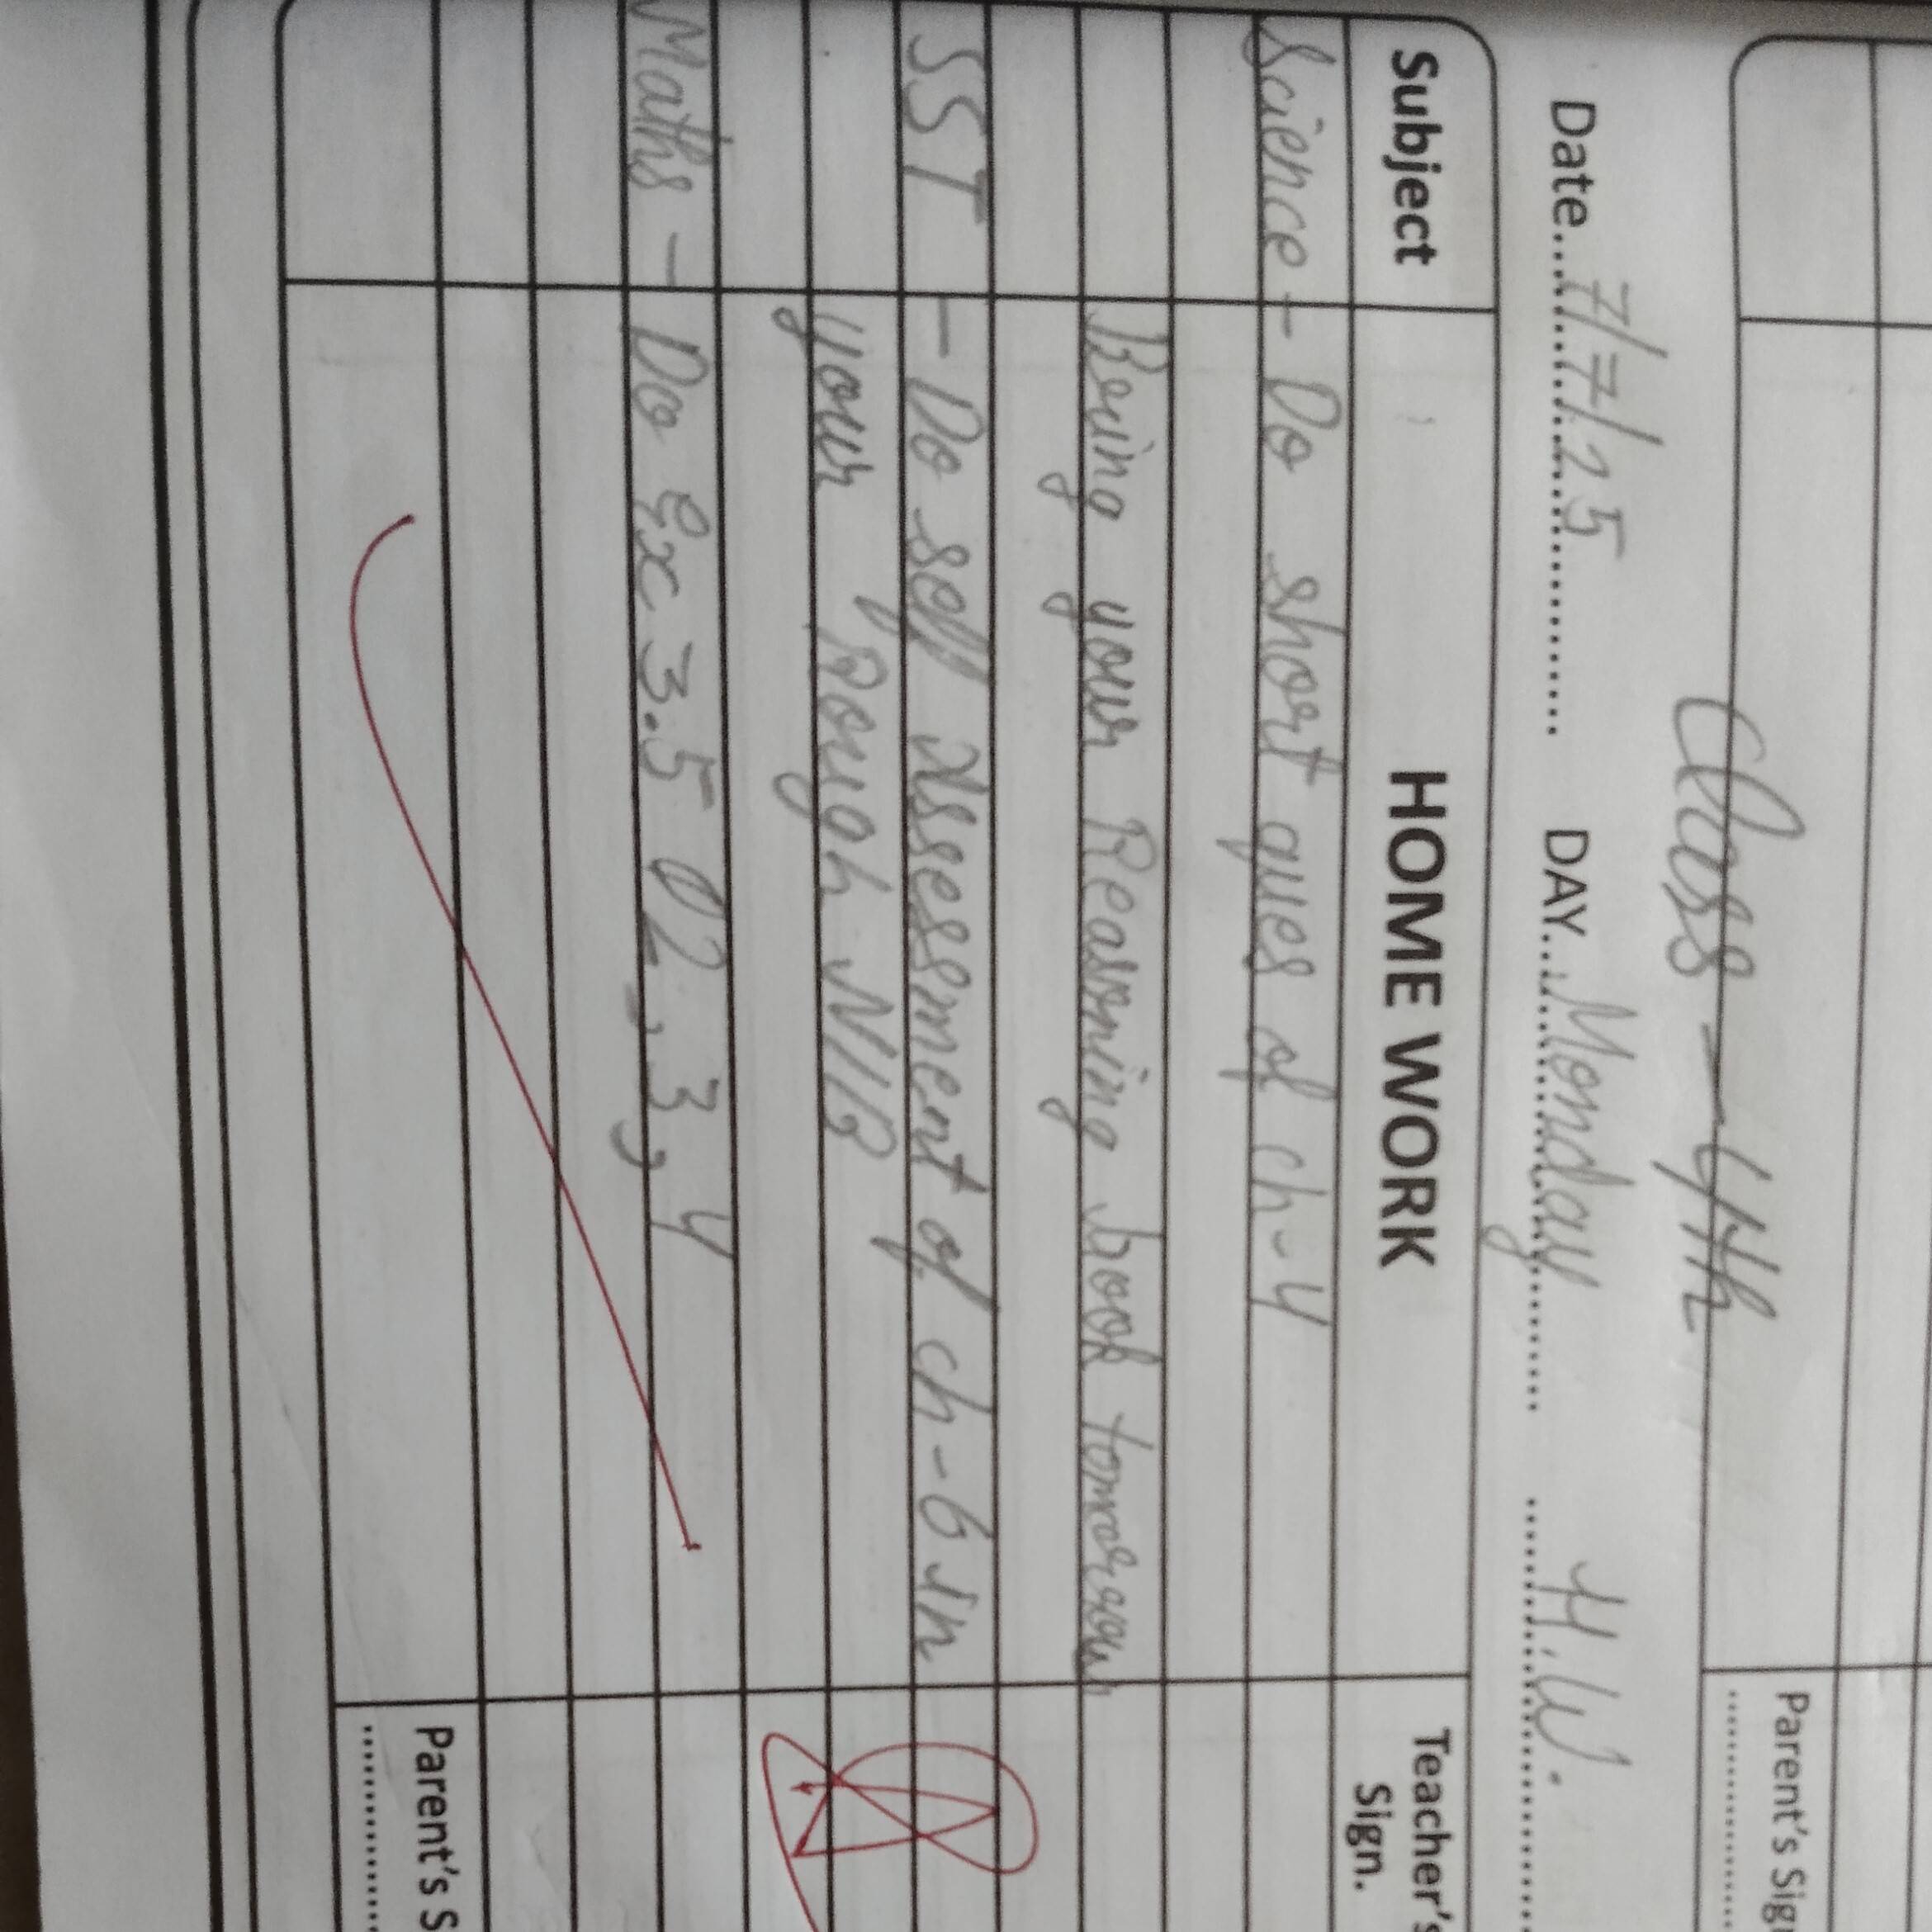 Parent's Sig
Class - 4th
Date 7/7/25 DAY Monday H.W.
Subject HOME WORK Teacher's Sign.
Science - Do short ques of ch-4
Bring your Reasoning book tomorrow
SST - Do self Assessment of ch-6 in
your Rough N/B
Maths - Do Ex 3.5 Q2, 3, 4
Parent's S